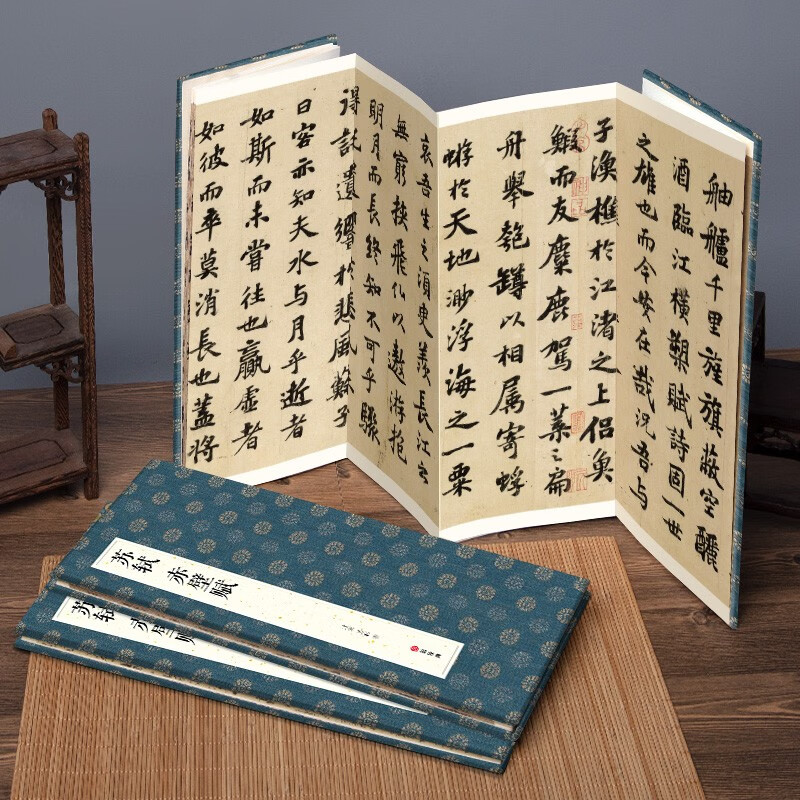 舳艫千里旌旗蔽空釃
酒臨江橫槊賦詩固一世
之雄也而今安在哉況吾与
子漁樵於江渚之上侶魚
鰕而友麋鹿駕一葉之扁
舟舉匏罇以相属寄蜉
蝣於天地渺浮海之一粟
哀吾生之須臾羨長江之
無窮挾飛仙以遨游抱
明月而長終知不可乎驟
得託遺響於悲風蘇子
曰客亦知夫水与月乎逝者
如斯而未嘗往也贏虛者
如彼而卒莫消長也蓋將
苏轼 赤壁赋
苏轼 赤壁赋